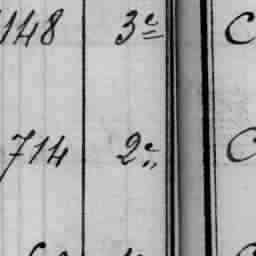 148 3e C
714 2e C